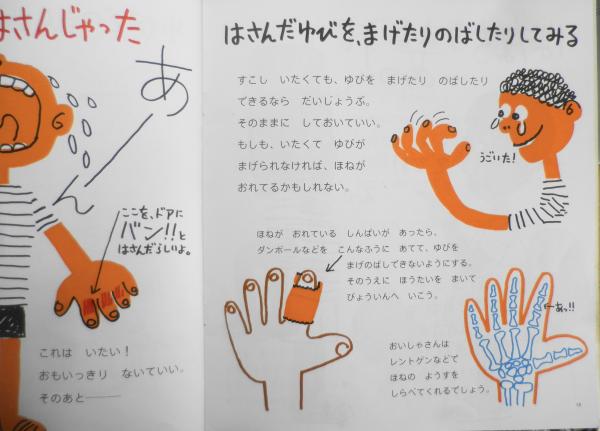 はさんじゃった
あ
ん
ここを、ドアに
バン!!と
はさんだらしいよ。
これは いたい!
おもいっきり ないていい。
そのあと―――
はさんだゆびを、まげたりのばしたりしてみる
すこし いたくても、ゆびを まげたり のばしたり
できるなら だいじょうぶ。
そのままに しておいていい。
もしも、いたくて ゆびが
まげられなければ、ほねが
おれてるかもしれない。
うごいた!
ほねが おれている しんぱいが あったら、
ダンボールなどを こんなふうに あてて、ゆびを
まげのばしできないようにする。
そのうえに ほうたいを まいて
びょういんへ いこう。
おいしゃさんは
レントゲンなどで
ほねの ようすを
しらべてくれるでしょう。
あっ!!